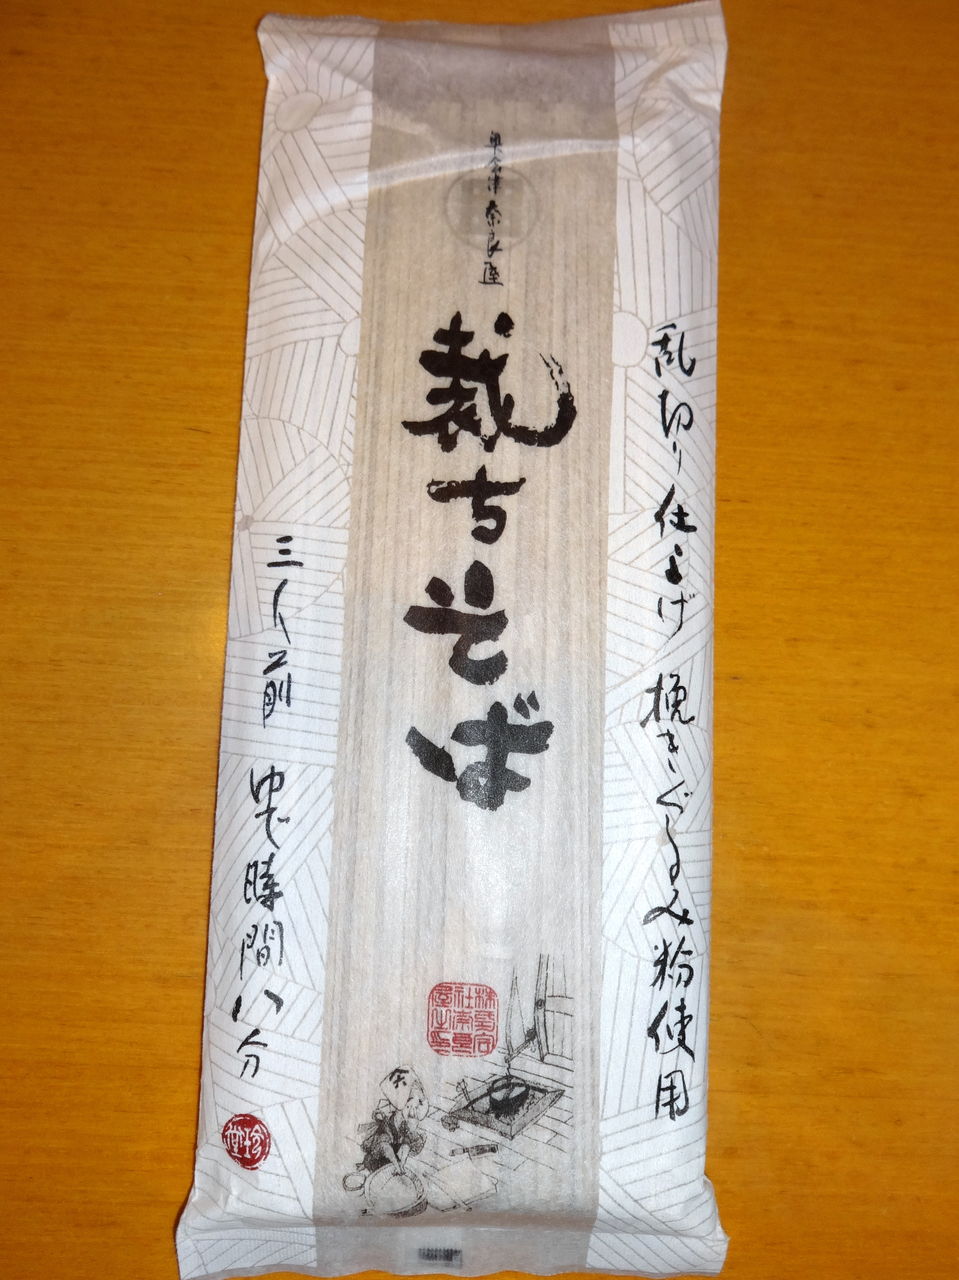 乱切り仕上げ 挽きぐるみ粉使用
奥会津奈良屋
裁ちそば
三人前 ゆで時間八分